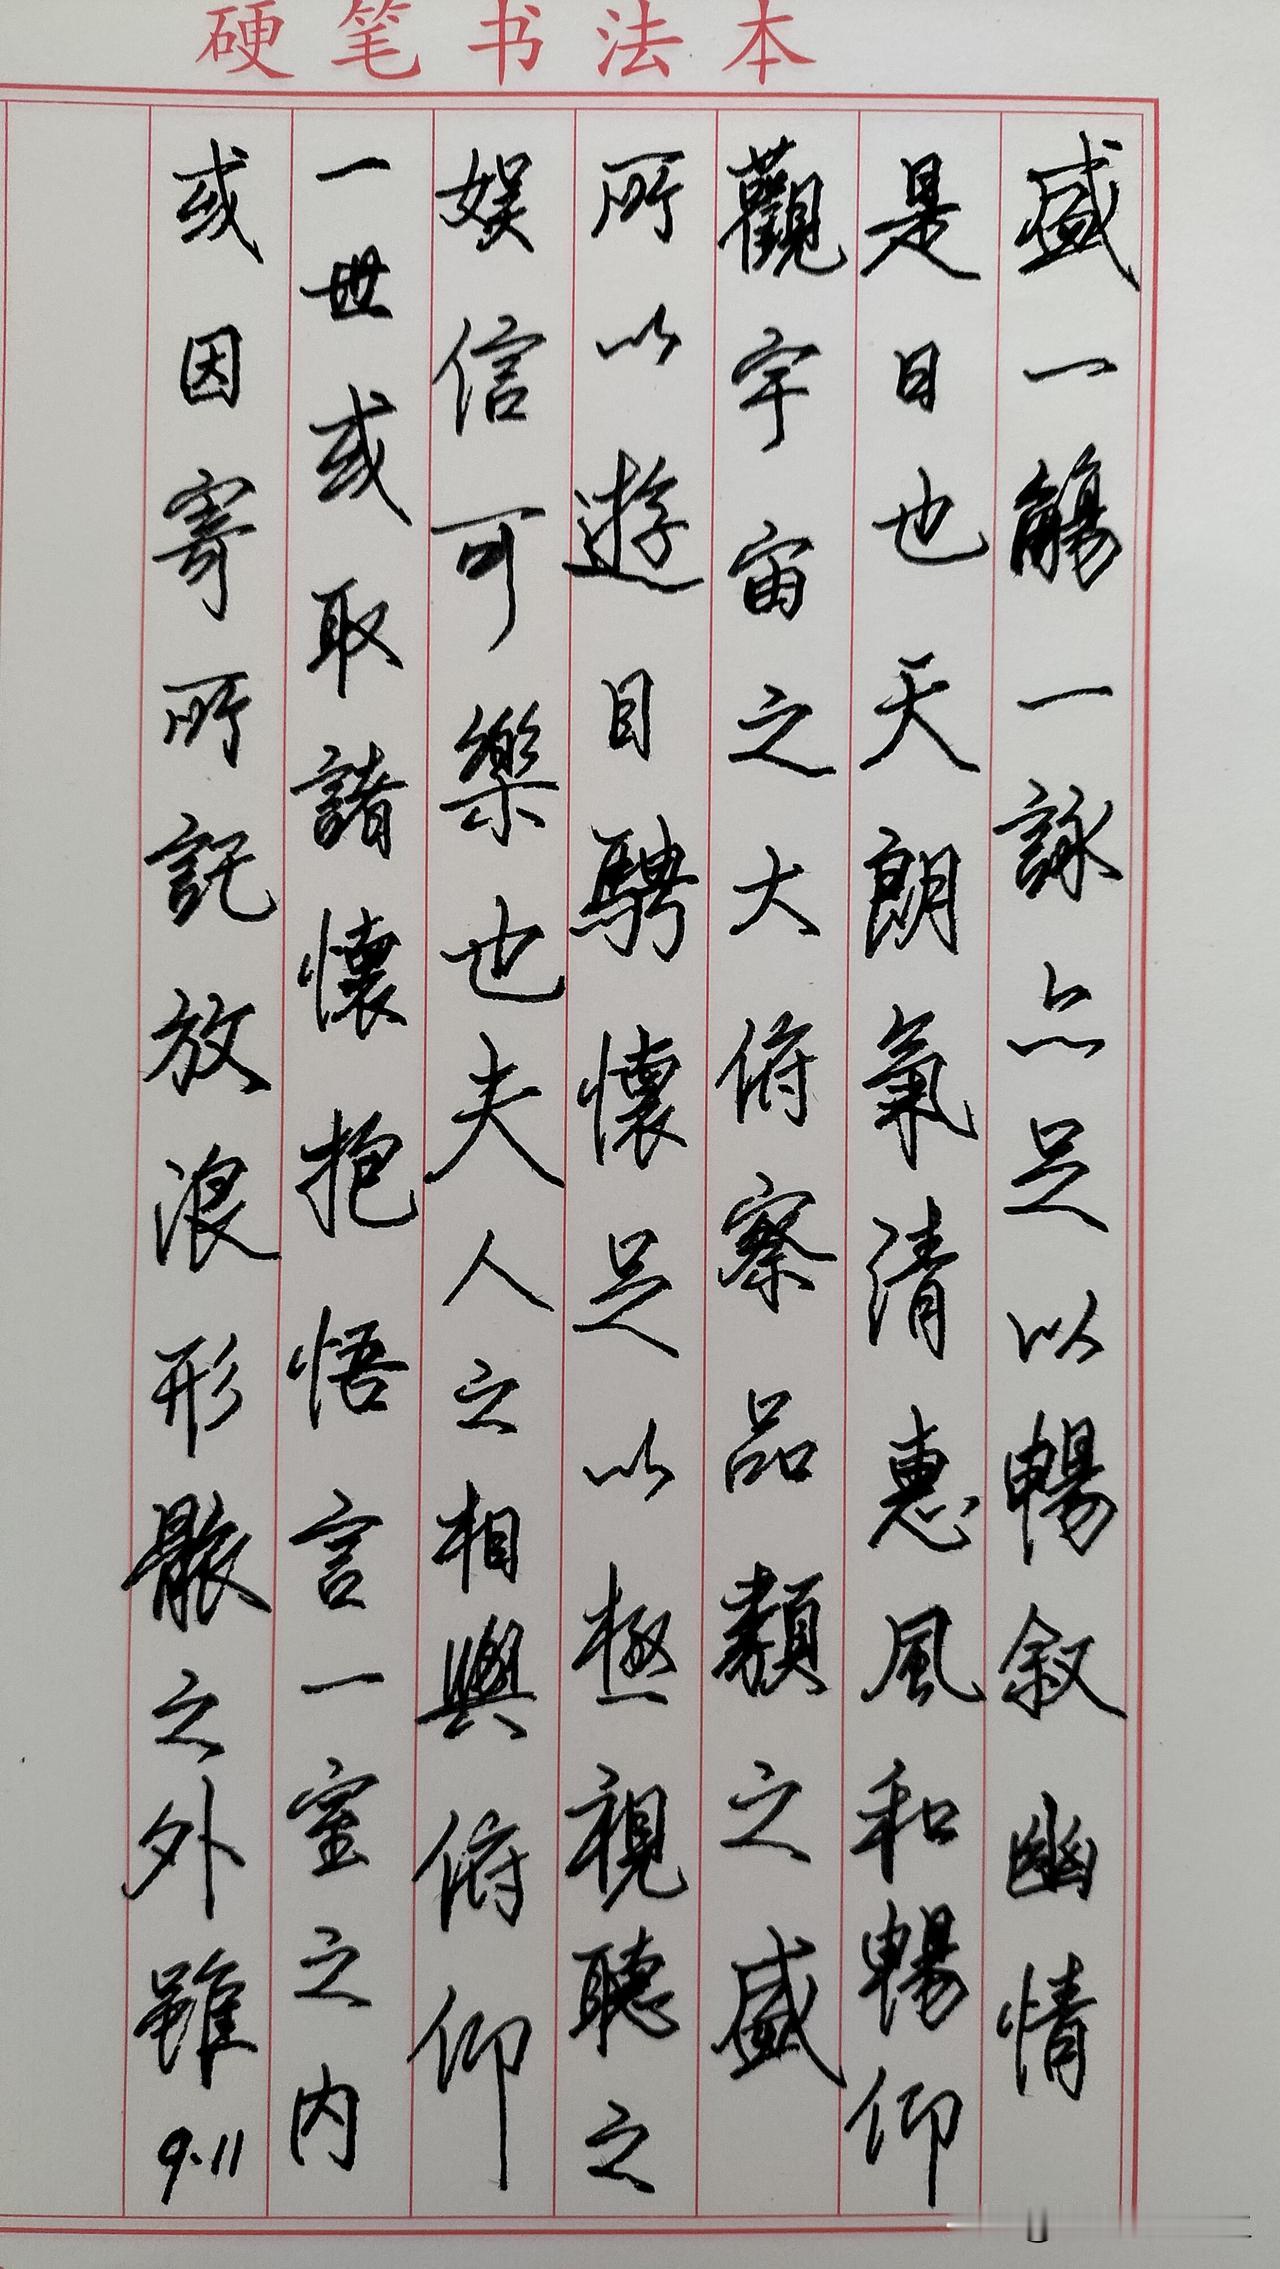 硬笔书法本
盛一觴一詠亦足以暢叙幽情
是日也天朗氣清惠風和暢仰
觀宇宙之大俯察品類之盛
所以遊目騁懷足以極視聽之
娱信可樂也夫人之相與俯仰
一世或取諸懷抱悟言一室之内
或因寄所託放浪形骸之外雖
9.11